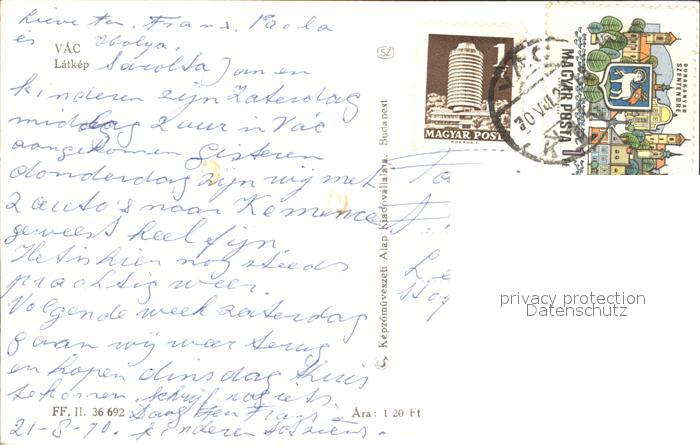 Lieve Fam. Frans. Paola
és Ibolya.
VÁC
Látkép
Sarolta Jan en
kinderen zijn Zaterdag
middag 2 uur in Vác
aangekomen Gisteren
donderdag zijn wij met
2 auto's naar Kemence
geweest heel fijn
Het is hier nog steeds
prachtig weer.
Volgende week zaterdag
gaan wij weer terug
en hopen dinsdag thuis
te komen. Schrijf nog iets.
FF. II. 36 692
Ára: 1 20 Ft
Daag Frans
21-8-70. kinderen
Képzőművészeti Alap Kiadóvállalata, Budapest
SZ
1
MAGYAR POSTA
MAGYAR POSTA
DUNAKANYAR
SZENTENDRE
1
VÁC
privacy protection
Datenschutz